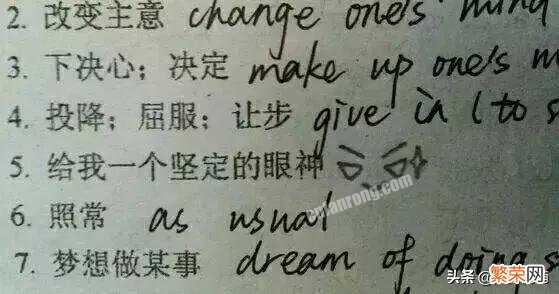 2. 改变主意 change one's mind
3. 下决心；决定 make up one's m
4. 投降；屈服；让步 give in (to s
5. 给我一个坚定的眼神
cnfanrong.com
6. 照常 as usual
7. 梦想做某事 dream of doing s
头条 繁荣网